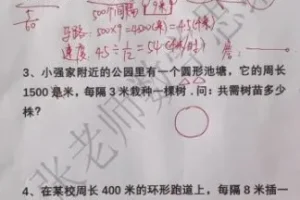 5/60
500个间隔
马路:500×9=4500(米)=4.5(千米)
速度:4.5÷1/12=54(千米/时)
答:
3、小强家附近的公园里有一个圆形池塘，它的周长
1500 米，每隔 3 米栽种一棵树.问：共需树苗多少
株?
4、在某校周长 400 米的环形跑道上，每隔 8 米插一
张老师数学思